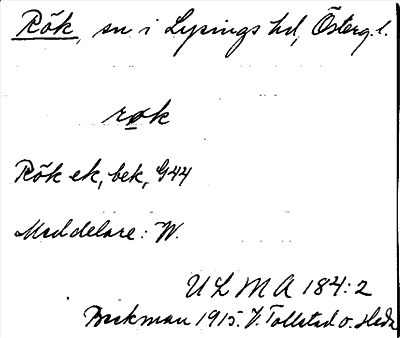 Rök, sn i Lysings hd, Österg. l.
røk
Rök ek, bek, G44
Meddelare: W.
ULMA 184:2
Beckman 1915. V. Tollstad o. Heda